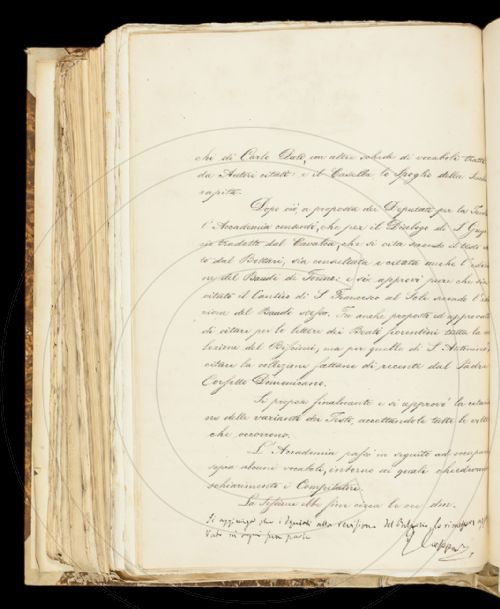 chi di Carlo Dati, un altre schede di vocaboli tratti
da Autori citati: e il Casella lo spoglio della
rapita.
Dopo ciò, a proposta dei Deputati per la
l'Accademia consentì, che per il Dialogo di S.
rio tradotto dal Cavalca, che si cita secondo il testo
to dal Bottari, sia consultata e citata anche l'
ne del Baudi di e si approvi pure che sia
citato il Cantico di S. Francesco al Sole secondo l'
zione del Baudi stesso. Fu anche proposto ed approvato
di citare per le lettere dei Beati fiorentini tutta la
lezione del Biscioni, ma per quelle di S. Antonino,
citare la collezione fattane di recente dal Padre
Corsetto Domenicano.
Si propose finalmente e si approvò la
ne delle varianti dei Testi, accettandole tutte le volte
che occorrono.
L'Accademia passò in seguito ad occupar
sopra alcuni vocaboli, intorno ai quali chiedevano
schiarimento i Compilatori.
La seduta ebbe fine circa le ore due.
Si aggiunge che i Deputati alla revisione del
vato in ogni sua parte